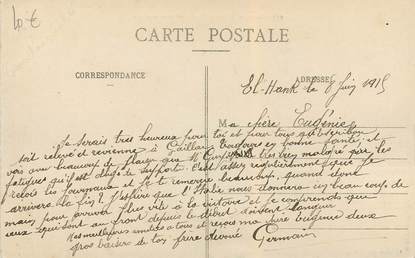 10 €
CARTE POSTALE
CORRESPONDANCE
ADRESSE
El-Hank le 8 Juin 1915
Ma chère Eugénie
Je serais très heureux pour toi et pour tous qu'
soit relevé et revienne à Gaillac, toujours en bonne santé, et
vois avec beaucoup de plaisir que Mr très bien malgré par les
fatigues qu'il est obligé de supporter. C'est assez régulièrement que je
reçois les journaux et je te remercie beaucoup, quand donc
arrivera la fin? J'espère que l'Italie nous donnera un beau coup de
main, pour arriver plus vite à la victoire et je comprends que
ceux qui sont au front depuis le début doivent languir
Mes meilleures amitiés à tous et reçois ma chère Eugénie deux
gros baisers de ton frère dévoué Germain